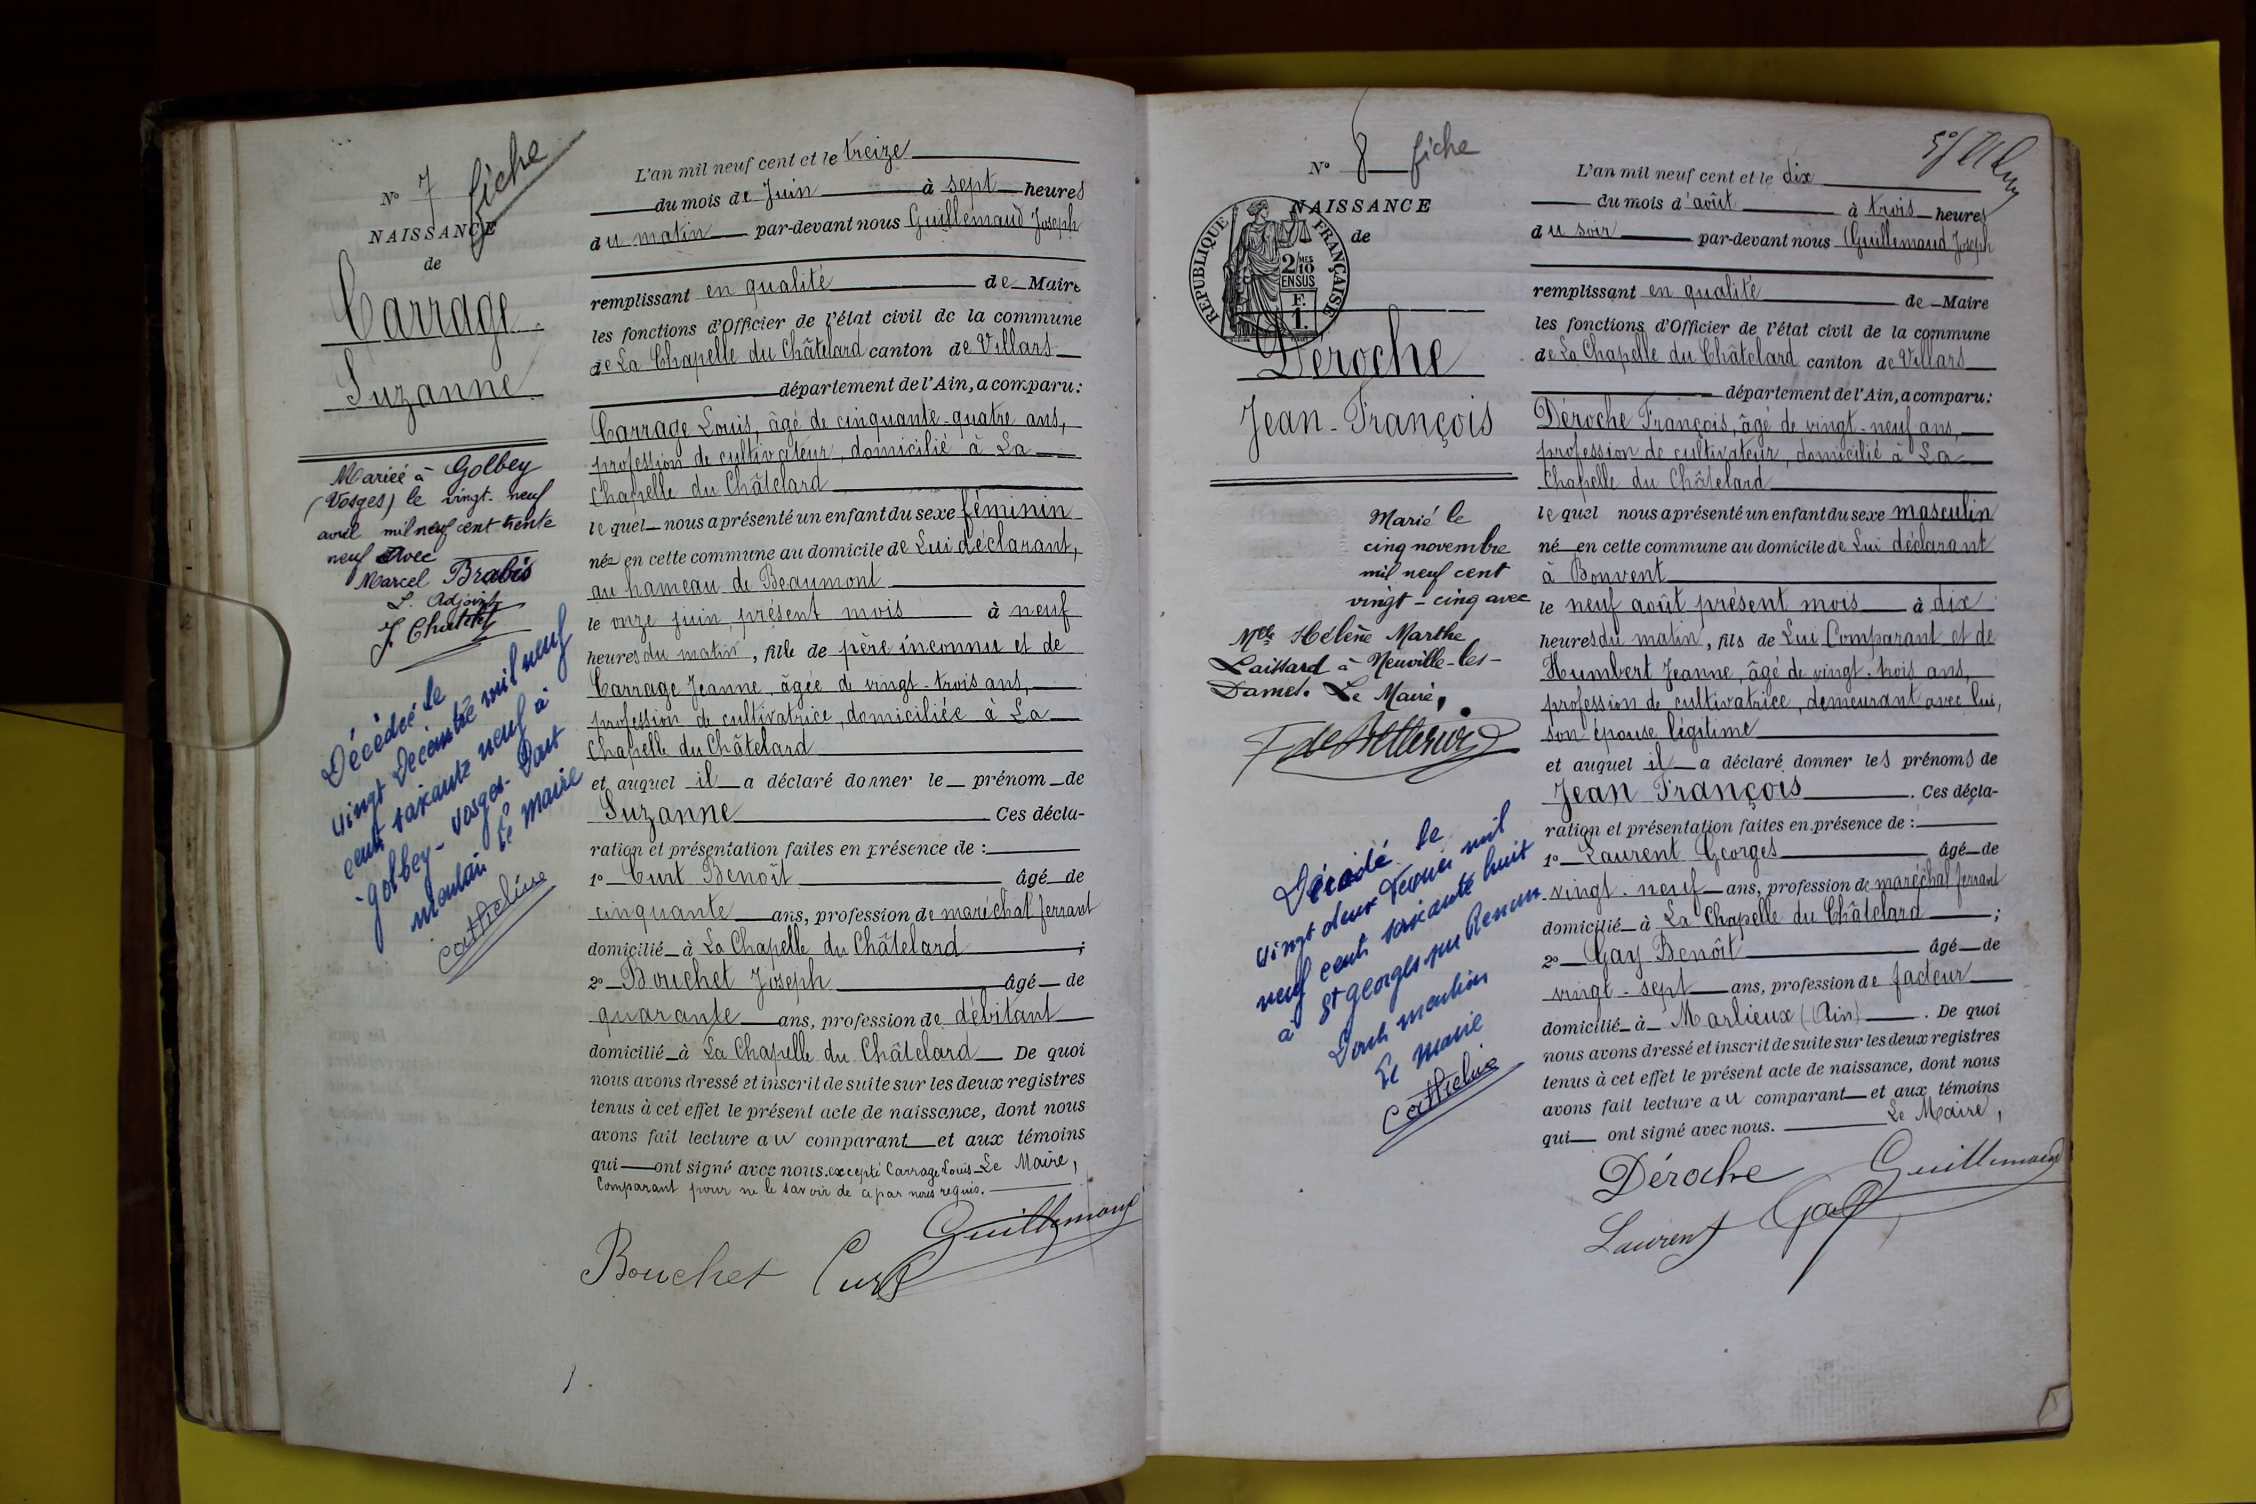 Nº 7 fiche
NAISSANCE
de
Carrage
Suzanne
Mariée à Golbey
(Vosges) le vingt-neuf
avril mil neuf cent trente
neuf avec
Marcel Brabis
L. Adjoint
J. Chatelet
Décédée le
vingt Décembre mil neuf
cent soixante neuf à
Golbey - Vosges - Dont
mention Le Maire
Catheline
L'an mil neuf cent et le treize
du mois de Juin à sept heures
du matin par-devant nous Guillemaud Joseph
remplissant en qualité de Maire
les fonctions d'Officier de l'état civil de la commune
de La Chapelle du Châtelard canton de Villars
département de l'Ain, a comparu:
Carrage Louis, âgé de cinquante-quatre ans,
profession de cultivateur, domicilié à La
Chapelle du Châtelard
le quel nous a présenté un enfant du sexe féminin
née en cette commune au domicile de Lui déclarant,
au hameau de Beaumont
le onze juin présent mois à neuf
heures du matin, fille de père inconnu et de
Carrage Jeanne, âgée de vingt-trois ans,
profession de cultivatrice, domiciliée à La
Chapelle du Châtelard
et auquel il a déclaré donner le prénom de
Suzanne Ces décla-
ration et présentation faites en présence de :
1º Curt Benoît âgé de
cinquante ans, profession de maréchal ferrant
domicilié à La Chapelle du Châtelard ;
2º Bouchet Joseph âgé de
quarante ans, profession de débitant
domicilié à La Chapelle du Châtelard De quoi
nous avons dressé et inscrit de suite sur les deux registres
tenus à cet effet le présent acte de naissance, dont nous
avons fait lecture au comparant et aux témoins
qui ont signé avec nous. excepté Carrage Louis Le Maire,
Comparant pour ne le savoir de ce par nous requis.
Guillemaud
Bouchet Curt
Nº 8 fiche
NAISSANCE
de
RÉPUBLIQUE FRANÇAISE
2/10MES
EN SUS
F.
1.
Déroche
Jean-François
Marié le
cinq novembre
mil neuf cent
vingt-cinq avec
Melle Hélène Marthe
Laissard à Neuville-les-
Dames. Le Maire,
Décédé le
vingt deux Février mil
neuf cent soixante huit
à St Georges sur Renon
Dont mention
Le Maire
Catheline
L'an mil neuf cent et le dix
du mois d'août à trois heures
du soir par-devant nous Guillemaud Joseph
remplissant en qualité de Maire
les fonctions d'Officier de l'état civil de la commune
de La Chapelle du Châtelard canton de Villars
département de l'Ain, a comparu:
Déroche François, âgé de vingt-neuf ans,
profession de cultivateur, domicilié à La
Chapelle du Châtelard
le quel nous a présenté un enfant du sexe masculin
né en cette commune au domicile de Lui déclarant
à Bonvent
le neuf août présent mois à dix
heures du matin, fils de Lui Comparant et de
Humbert Jeanne, âgé de vingt-trois ans,
profession de cultivatrice, demeurant avec lui,
son épouse légitime
et auquel il a déclaré donner les prénoms de
Jean François . Ces décla-
ration et présentation faites en présence de :
1º Laurent Georges âgé de
vingt-neuf ans, profession de maréchal ferrant
domicilié à La Chapelle du Châtelard ;
2º Gay Benoît âgé de
vingt-sept ans, profession de facteur
domicilié à Marlieux (Ain) . De quoi
nous avons dressé et inscrit de suite sur les deux registres
tenus à cet effet le présent acte de naissance, dont nous
avons fait lecture au comparant et aux témoins
qui ont signé avec nous. Le Maire,
Déroche Guillemaud
Laurent Gay